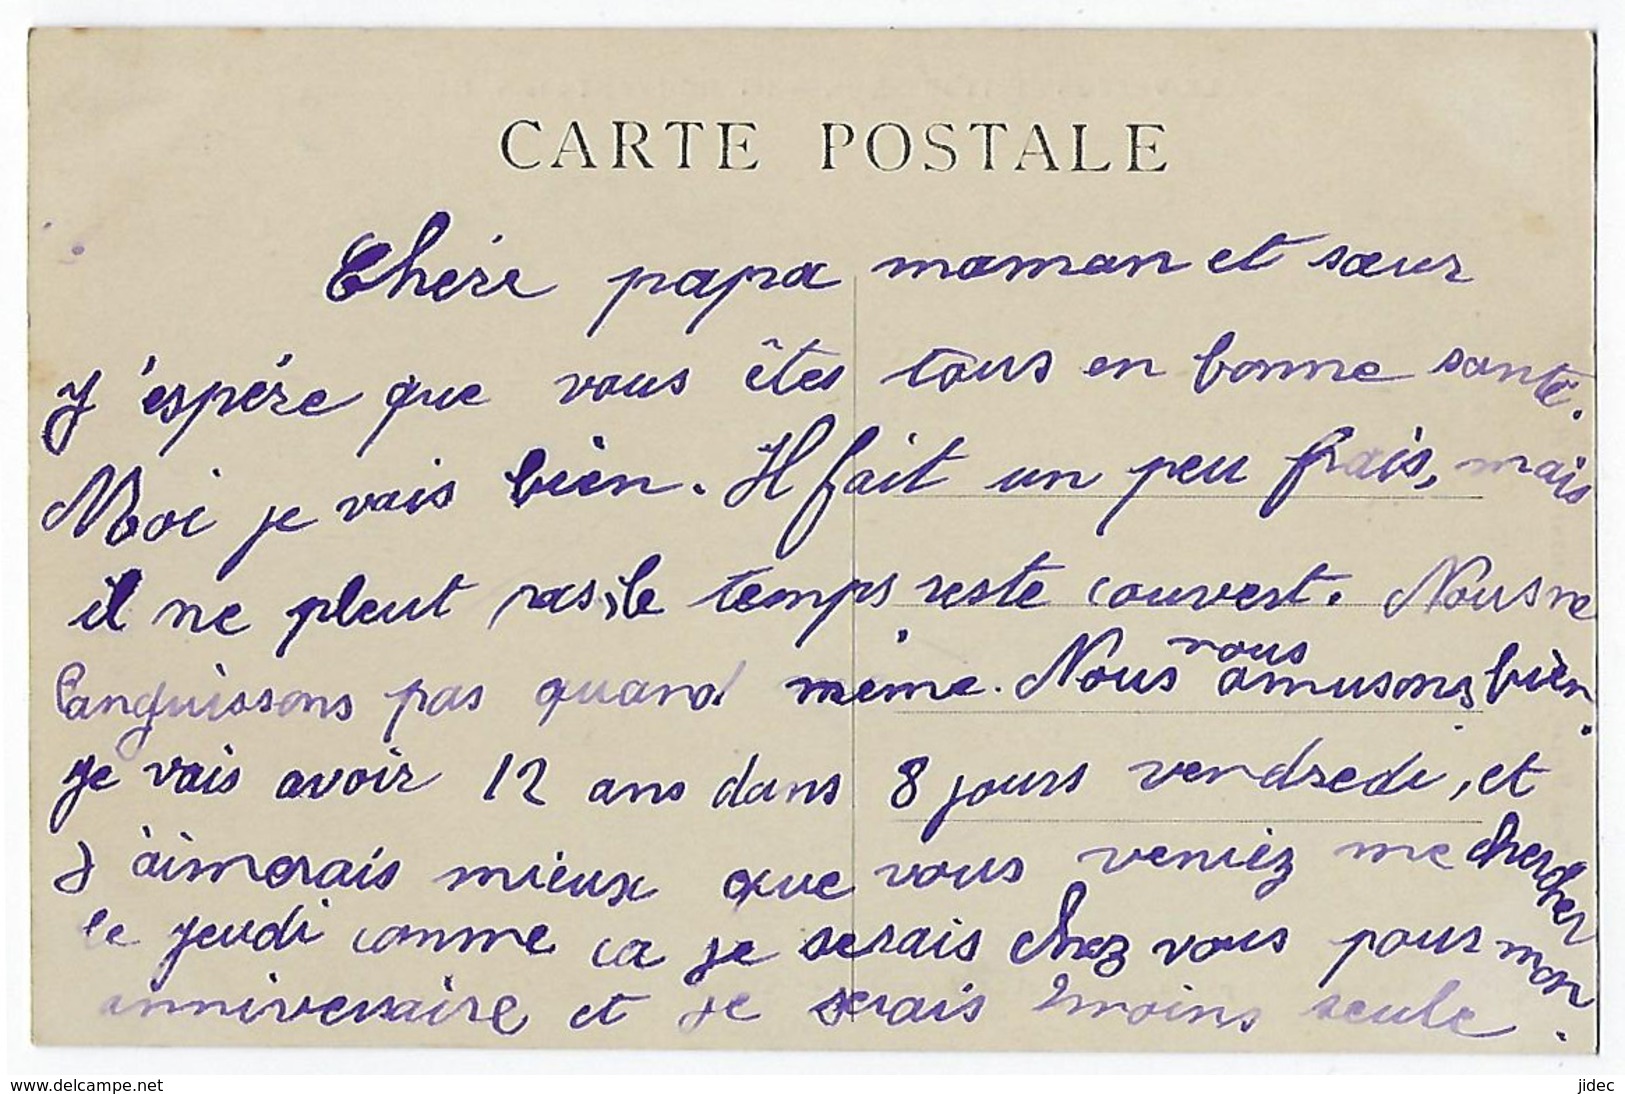 CARTE POSTALE
Chère papa maman et sœur
J'espère que vous êtes tous en bonne santé.
Moi je vais bien. Il fait un peu frais, mais
il ne pleut pas, le temps reste couvert. Nous ne
languissons pas quand même. Nous vous amusons bien.
Je vais avoir 12 ans dans 8 jours vendredi, et
J'aimerais mieux que vous veniez me chercher
le jeudi comme ca je serais chez vous pour mon
anniversaire et je serais moins seule.
www.delcampe.net
jidec